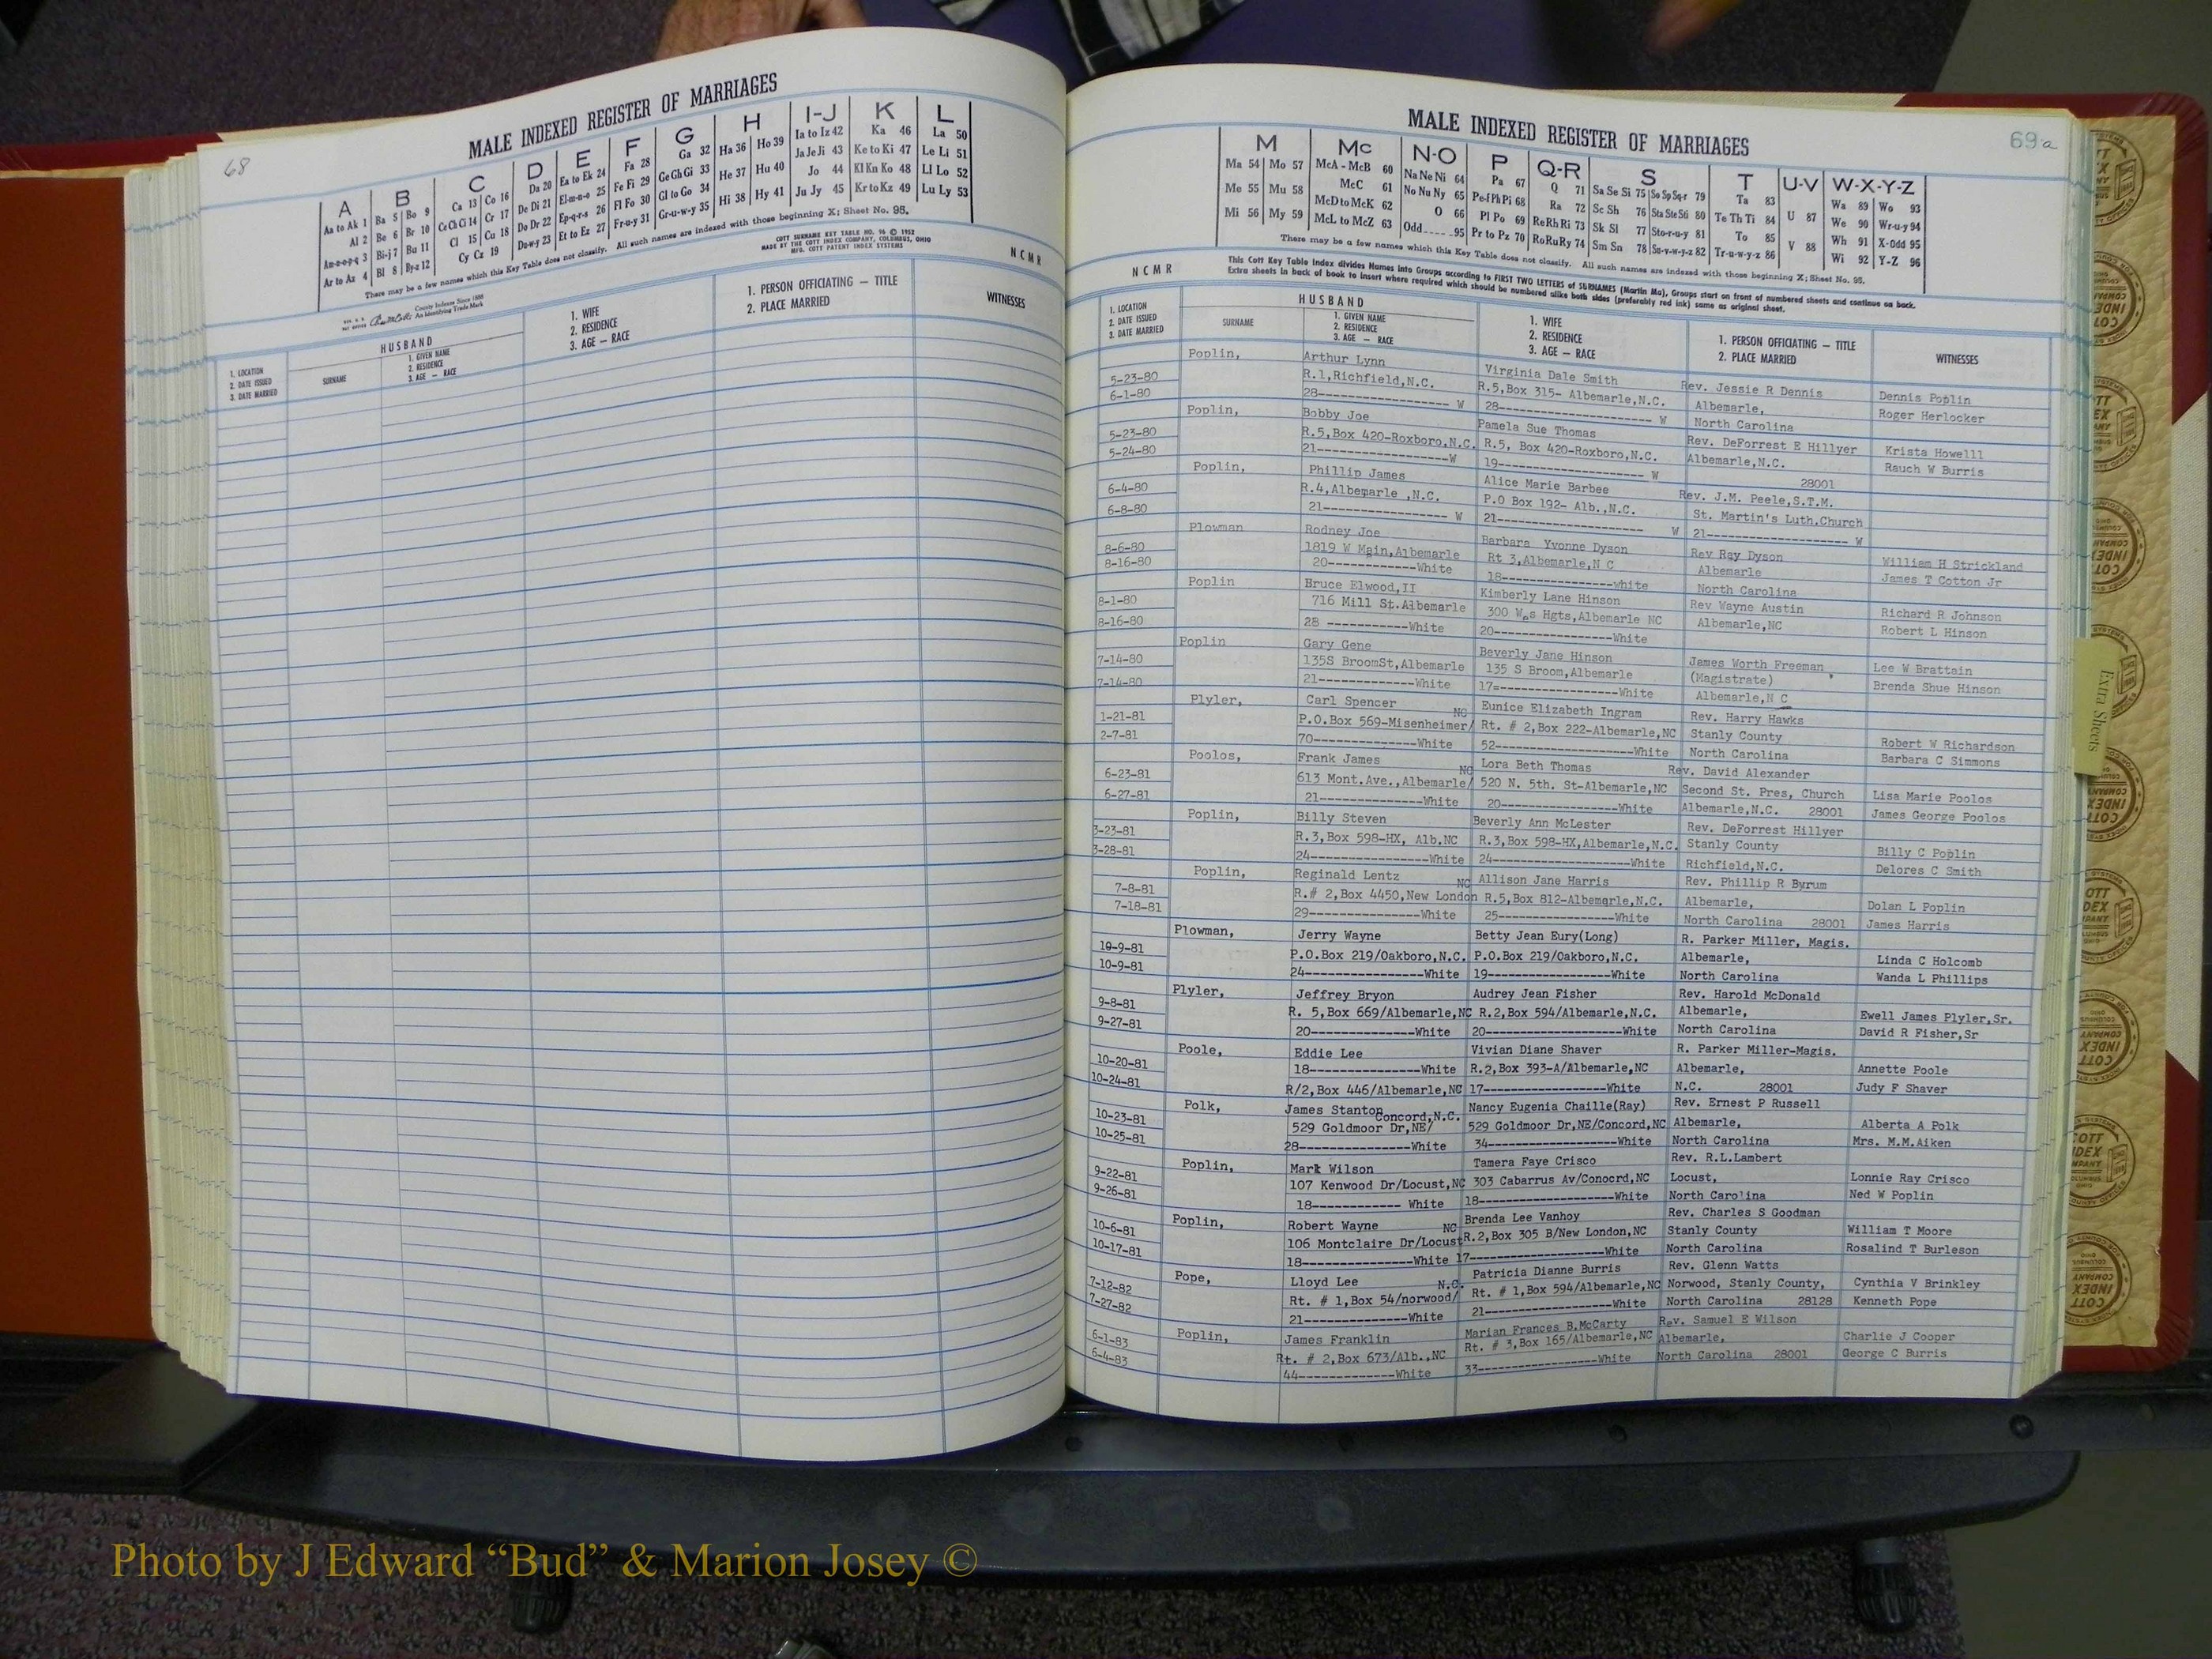 68
MALE INDEXED REGISTER OF MARRIAGES
A B C D E F G H I-J K L
Aa to Ak 1 Ba 5 Bo 9 Ca 13 Co 16 Da 20 Ea to Ek 24 Fa 28 Ga 32 Ha 36 Ho 39 Ia to Iz 42 Ka 46 La 50
Al 2 Be 6 Br 10 Ce Ch Ci 14 Cr 17 De Di 21 El-m-n-o 25 Fe Fi 29 Ge Gh Gi 33 He 37 Hu 40 Ja Je Ji 43 Ke to Ki 47 Le Li 51
Am-n-o-p-q 3 Bi-j 7 Bu 11 Cl 15 Cu 18 Do Dr 22 Ep-q-r-s 26 Fl Fo 30 Gl to Go 34 Hi 38 Hy 41 Jo 44 Kl Kn Ko 48 Ll Lo 52
Ar to Az 4 Bl 8 By-z 12 Cy Cz 19 Du-w-y 23 Et to Ez 27 Fr-u-y 31 Gr-u-w-y 35 Ju Jy 45 Kr to Kz 49 Lu Ly 53
There may be a few names which this Key Table does not classify. All such names are indexed with those beginning X; Sheet No. 95.
COTT SURNAME KEY TABLE NO. 96 © 1952
MADE BY THE COTT INDEX COMPANY, COLUMBUS, OHIO
MFG. COTT PATENT INDEX SYSTEMS
County Indexes Since 1888
An Identifying Trade Mark
N C M R
1. LOCATION
2. DATE ISSUED
3. DATE MARRIED
HUSBAND
SURNAME
1. GIVEN NAME
2. RESIDENCE
3. AGE — RACE
1. WIFE
2. RESIDENCE
3. AGE — RACE
1. PERSON OFFICIATING — TITLE
2. PLACE MARRIED
WITNESSES
69a
MALE INDEXED REGISTER OF MARRIAGES
M Mc N-O P Q-R S T U-V W-X-Y-Z
Ma 54 Mo 57 McA - McB 60 Na Ne Ni 64 Pa 67 Q 71 Sa Se Si 75 So Sp Sq-r 79 Ta 83 U 87 Wa 89 Wo 93
Me 55 Mu 58 McC 61 No Nu Ny 65 Pe-f Ph Pi 68 Ra 72 Sc Sh 76 Sta Ste Sti 80 Te Th Ti 84 V 88 We 90 Wr-u-y 94
Mi 56 My 59 McD to McK 62 O 66 Pl Po 69 Re Rh Ri 73 Sk Sl 77 Sto-r-u-y 81 To 85 Wh 91 X-Odd 95
McL to McZ 63 Odd 95 Pr to Pz 70 Ro Ru Ry 74 Sm Sn 78 Su-v-w-y-z 82 Tr-u-w-y-z 86 Wi 92 Y-Z 96
There may be a few names which this Key Table does not classify. All such names are indexed with those beginning X; Sheet No. 95.
This Cott Key Table Index divides Names into Groups according to FIRST TWO LETTERS of SURNAMES (Martin Ma), Groups start on front of numbered sheets and continue on back.
Extra sheets in back of book to insert where required which should be numbered alike both sides (preferably red ink) same as original sheet.
N C M R
1. LOCATION
2. DATE ISSUED
3. DATE MARRIED
HUSBAND
SURNAME
1. GIVEN NAME
2. RESIDENCE
3. AGE — RACE
1. WIFE
2. RESIDENCE
3. AGE — RACE
1. PERSON OFFICIATING — TITLE
2. PLACE MARRIED
WITNESSES
Poplin, Arthur Lynn Virginia Dale Smith Rev. Jessie R Dennis Dennis Poplin
5-23-80 R.1,Richfield,N.C. R.5,Box 315- Albemarle,N.C. Albemarle, Roger Herlocker
6-1-80 28---------- W 28---------- W North Carolina
Poplin, Bobby Joe Pamela Sue Thomas Rev. DeForrest E Hillyer Krista Howelll
5-23-80 R.5,Box 420-Roxboro,N.C. R.5, Box 420-Roxboro,N.C. Albemarle,N.C. Rauch W Burris
5-24-80 21----------W 19---------- W 28001
Poplin, Phillip James Alice Marie Barbee Rev. J.M. Peele,S.T.M.
6-4-80 R.4,Albemarle ,N.C. P.O Box 192- Alb.,N.C. St. Martin's Luth.Church
6-8-80 21---------- W 21---------- W 21---------- W
Plowman Rodney Joe Barbara Yvonne Dyson Rev Ray Dyson William H Strickland
8-6-80 1819 W Main,Albemarle Rt 3,Albemarle,N C Albemarle James T Cotton Jr
8-16-80 20----------White 18----------white North Carolina
Poplin Bruce Elwood,II Kimberly Lane Hinson Rev Wayne Austin Richard R Johnson
8-1-80 716 Mill St.Albemarle 300 W,s Hgts,Albemarle NC Albemarle,NC Robert L Hinson
8-16-80 28 ----------White 20----------White
Poplin Gary Gene Beverly Jane Hinson James Worth Freeman Lee W Brattain
7-14-80 135S BroomSt,Albemarle 135 S Broom,Albemarle (Magistrate) Brenda Shue Hinson
7-14-80 21----------White 17=----------White Albemarle,N C
Plyler, Carl Spencer NC Eunice Elizabeth Ingram Rev. Harry Hawks
1-21-81 P.O.Box 569-Misenheimer/ Rt. # 2,Box 222-Albemarle,NC Stanly County Robert W Richardson
2-7-81 70----------White 52----------White North Carolina Barbara C Simmons
Poolos, Frank James NC Lora Beth Thomas Rev. David Alexander
6-23-81 613 Mont.Ave.,Albemarle/ 520 N. 5th. St-Albemarle,NC Second St. Pres, Church Lisa Marie Poolos
6-27-81 21----------White 20----------White Albemarle,N.C. 28001 James George Poolos
Poplin, Billy Steven Beverly Ann McLester Rev. DeForrest Hillyer
3-23-81 R.3,Box 598-HX, Alb.NC R.3,Box 598-HX,Albemarle,N.C. Stanly County Billy C Poplin
3-28-81 24----------White 24----------White Richfield,N.C. Delores C Smith
Poplin, Reginald Lentz NC Allison Jane Harris Rev. Phillip R Byrum
7-8-81 R.# 2,Box 4450,New London R.5,Box 812-Albemarle,N.C. Albemarle, Dolan L Poplin
7-18-81 29----------White 25----------White North Carolina 28001 James Harris
Plowman, Jerry Wayne Betty Jean Eury(Long) R. Parker Miller, Magis.
10-9-81 P.O.Box 219/Oakboro,N.C. P.O.Box 219/Oakboro,N.C. Albemarle, Linda C Holcomb
10-9-81 24----------White 19----------White North Carolina Wanda L Phillips
Plyler, Jeffrey Bryon Audrey Jean Fisher Rev. Harold McDonald
9-8-81 R. 5,Box 669/Albemarle,NC R.2,Box 594/Albemarle,N.C. Albemarle, Ewell James Plyler,Sr.
9-27-81 20----------White 20----------White North Carolina David R Fisher,Sr
Poole, Eddie Lee Vivian Diane Shaver R. Parker Miller-Magis.
10-20-81 18----------White R.2,Box 393-A/Albemarle,NC Albemarle, Annette Poole
10-24-81 R/2,Box 446/Albemarle,NC 17----------White N.C. 28001 Judy F Shaver
Polk, James Stanton Concord,N.C. Nancy Eugenia Chaille(Ray) Rev. Ernest P Russell
10-23-81 529 Goldmoor Dr,NE/ 529 Goldmoor Dr,NE/Concord,NC Albemarle, Alberta A Polk
10-25-81 28----------White 34----------White North Carolina Mrs. M.M.Aiken
Poplin, Mark Wilson Tamera Faye Crisco Rev. R.L.Lambert
9-22-81 107 Kenwood Dr/Locust,NC 303 Cabarrus Av/Conocrd,NC Locust, Lonnie Ray Crisco
9-26-81 18---------- White 18----------White North Carolina Ned W Poplin
Poplin, Robert Wayne NC Brenda Lee Vanhoy Rev. Charles S Goodman
10-6-81 106 Montclaire Dr/Locust R.2,Box 305 B/New London,NC Stanly County William T Moore
10-17-81 18----------White 17----------White North Carolina Rosalind T Burleson
Pope, Lloyd Lee N.C. Patricia Dianne Burris Rev. Glenn Watts
7-12-82 Rt. # 1,Box 54/norwood/ Rt. # 1,Box 594/Albemarle,NC Norwood, Stanly County, Cynthia V Brinkley
7-27-82 21----------White 21----------White North Carolina 28128 Kenneth Pope
Poplin, James Franklin Marian Frances B.McCarty Rev. Samuel E Wilson
6-1-83 Rt. # 2,Box 673/Alb.,NC Rt. # 3,Box 165/Albemarle,NC Albemarle, Charlie J Cooper
6-4-83 44----------White 33----------White North Carolina 28001 George C Burris
Extra Sheets
Photo by J Edward “Bud” & Marion Josey ©